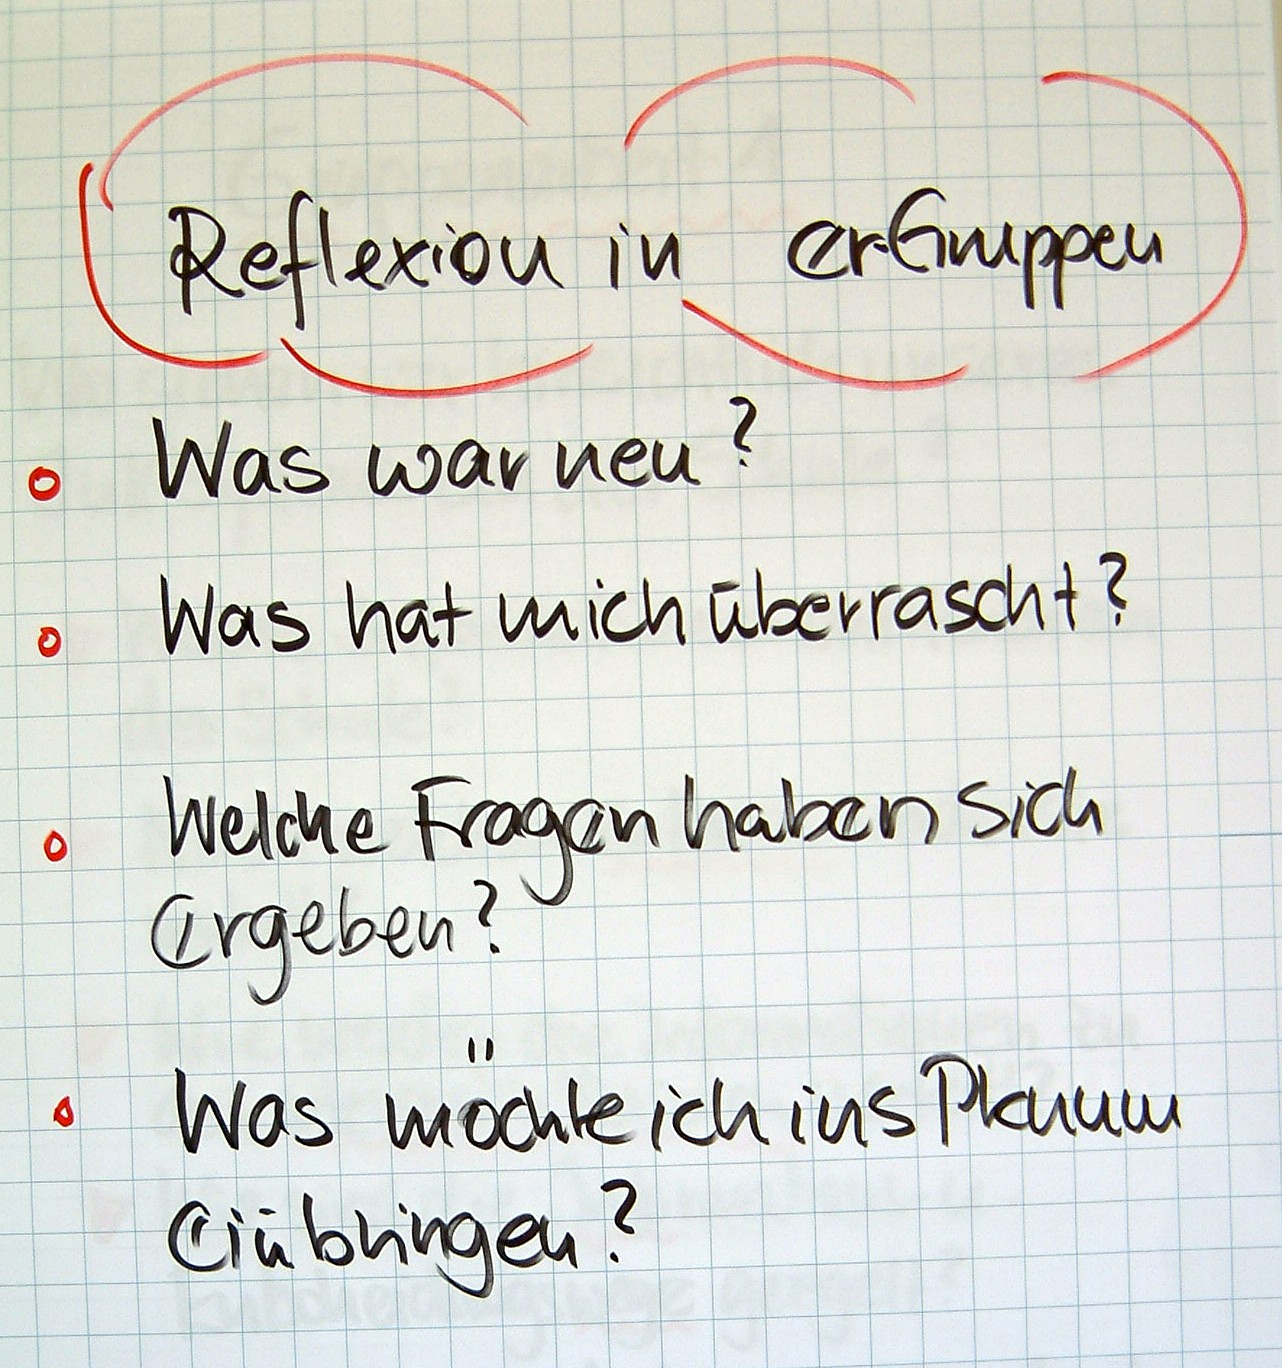 Reflexion in er-Gruppen
Was war neu?
Was hat mich überrascht?
Welche Fragen haben sich
ergeben?
Was möchte ich ins Plenum
einbringen?